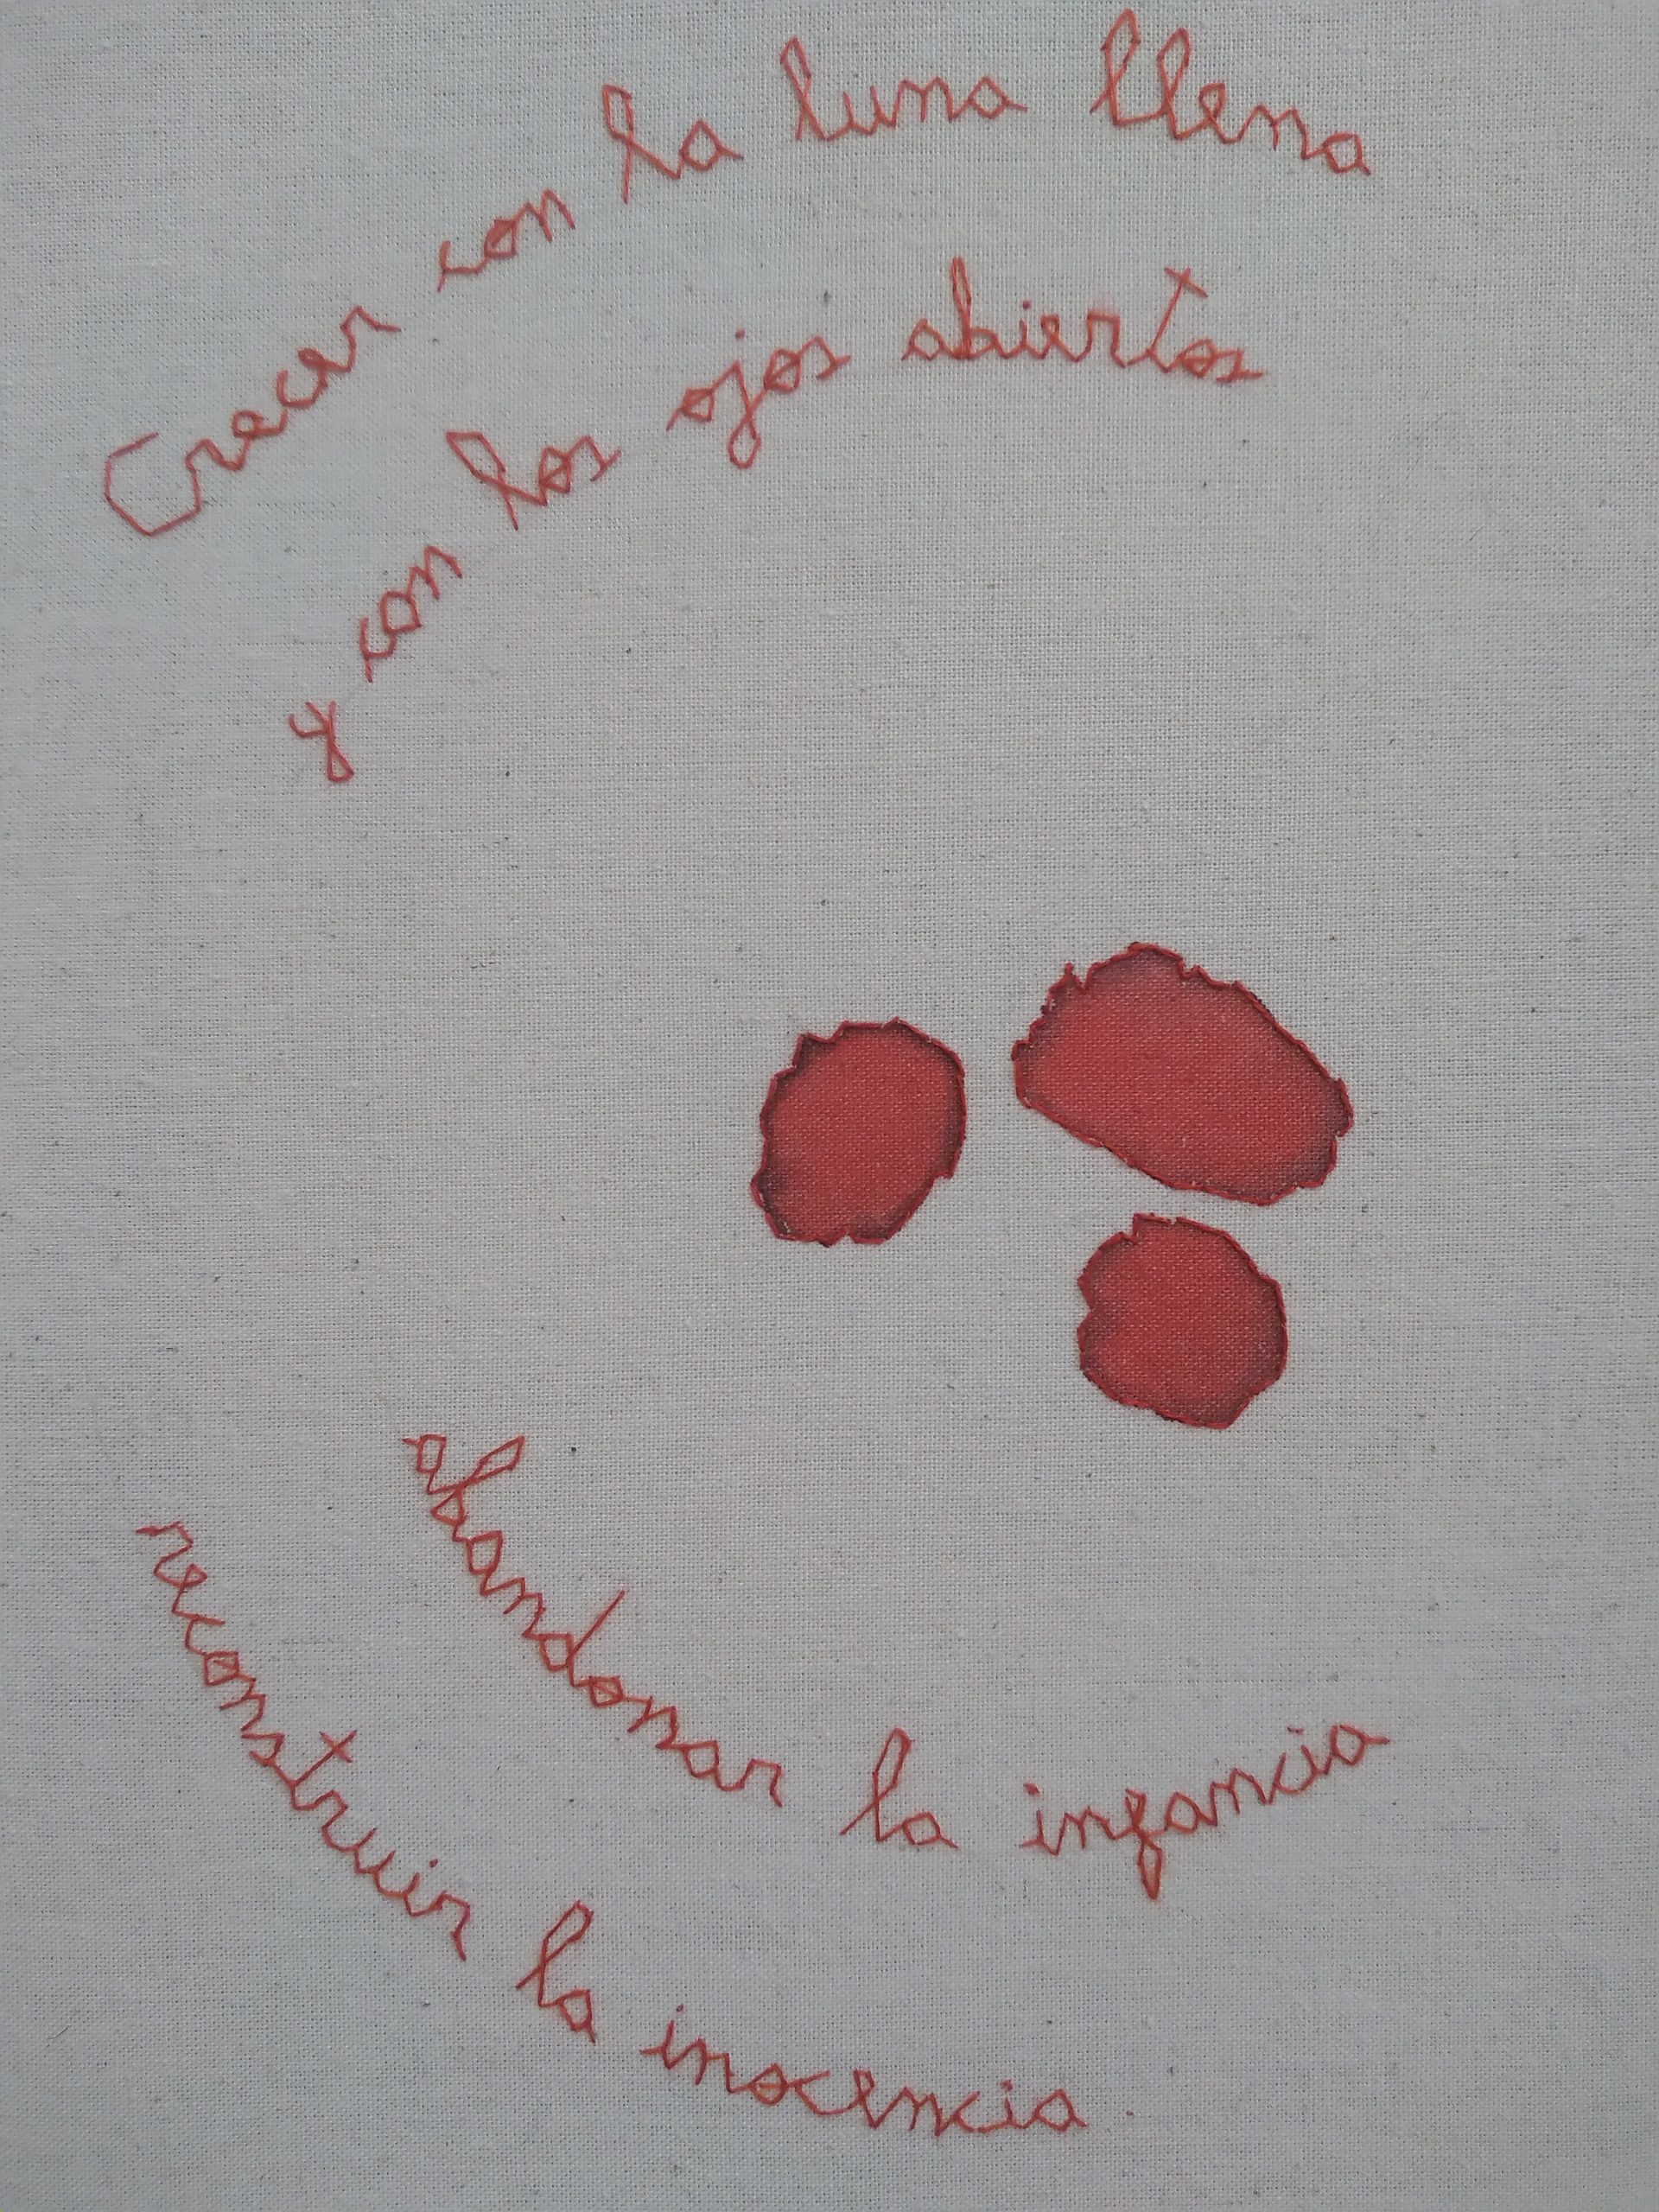 Crecer con la luna llena
y con los ojos abiertos
abandonar la infancia
reconstruir la inocencia